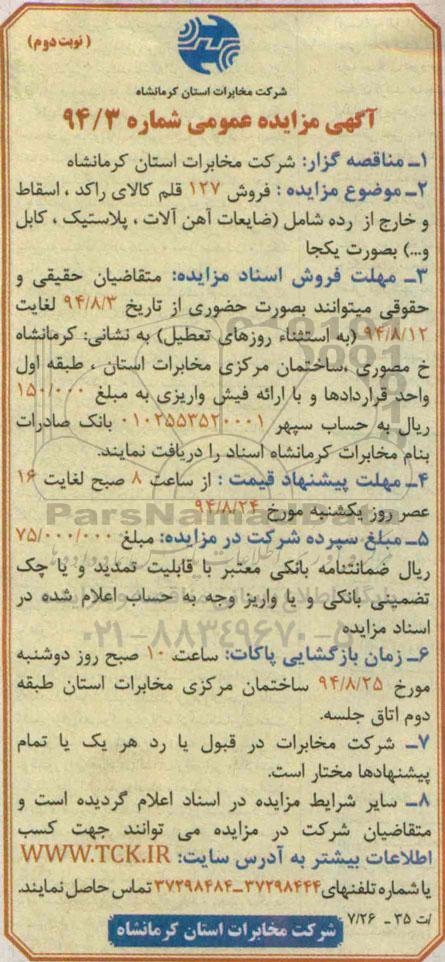 (نوبت دوم)
شرکت مخابرات استان کرمانشاه
آگهی مزایده عمومی شماره ۹۴/۳
۱ـ مناقصه گزار: شرکت مخابرات استان کرمانشاه
۲ـ موضوع مزایده : فروش ۱۲۷ قلم کالای راکد ، اسقاط
و خارج از رده شامل (ضایعات آهن آلات ، پلاستیک ، کابل
و...) بصورت یکجا
۳ـ مهلت فروش اسناد مزایده: متقاضیان حقیقی و
حقوقی میتوانند بصورت حضوری از تاریخ ۹۴/۸/۳ لغایت
۹۴/۸/۱۲ (به استثناء روزهای تعطیل) به نشانی: کرمانشاه
خ مصوری ،ساختمان مرکزی مخابرات استان ، طبقه اول
واحد قراردادها و با ارائه فیش واریزی به مبلغ ۱۵۰/۰۰۰
ریال به حساب سپهر ۰۱۰۲۵۵۳۵۲۰۰۰۱ بانک صادرات
بنام مخابرات کرمانشاه اسناد را دریافت نمایند.
۴ـ مهلت پیشنهاد قیمت : از ساعت ۸ صبح لغایت ۱۶
عصر روز یکشنبه مورخ ۹۴/۸/۲۴
ParsNamadData
۵ـ مبلغ سپرده شرکت در مزایده: مبلغ ۷۵/۰۰۰/۰۰۰
ریال ضمانتنامه بانکی معتبر با قابلیت تمدید و یا چک
تضمینی بانکی و یا واریز وجه به حساب اعلام شده در
اسناد مزایده
۰۲۱-۸۸۳۴۹۶۷۰-۵
۶ـ زمان بازگشایی پاکات: ساعت ۱۰ صبح روز دوشنبه
مورخ ۹۴/۸/۲۵ ساختمان مرکزی مخابرات استان طبقه
دوم اتاق جلسه.
۷ـ شرکت مخابرات در قبول یا رد هر یک یا تمام
پیشنهادها مختار است.
۸ـ سایر شرایط مزایده در اسناد اعلام گردیده است و
متقاضیان شرکت در مزایده می توانند جهت کسب
اطلاعات بیشتر به آدرس سایت: WWW.TCK.IR
یا شماره تلفنهای ۳۷۲۹۸۴۴۴-۳۷۲۹۸۴۸۴ تماس حاصل نمایند.
/ت ۳۵ ـ ۷/۲۶
شرکت مخابرات استان کرمانشاه